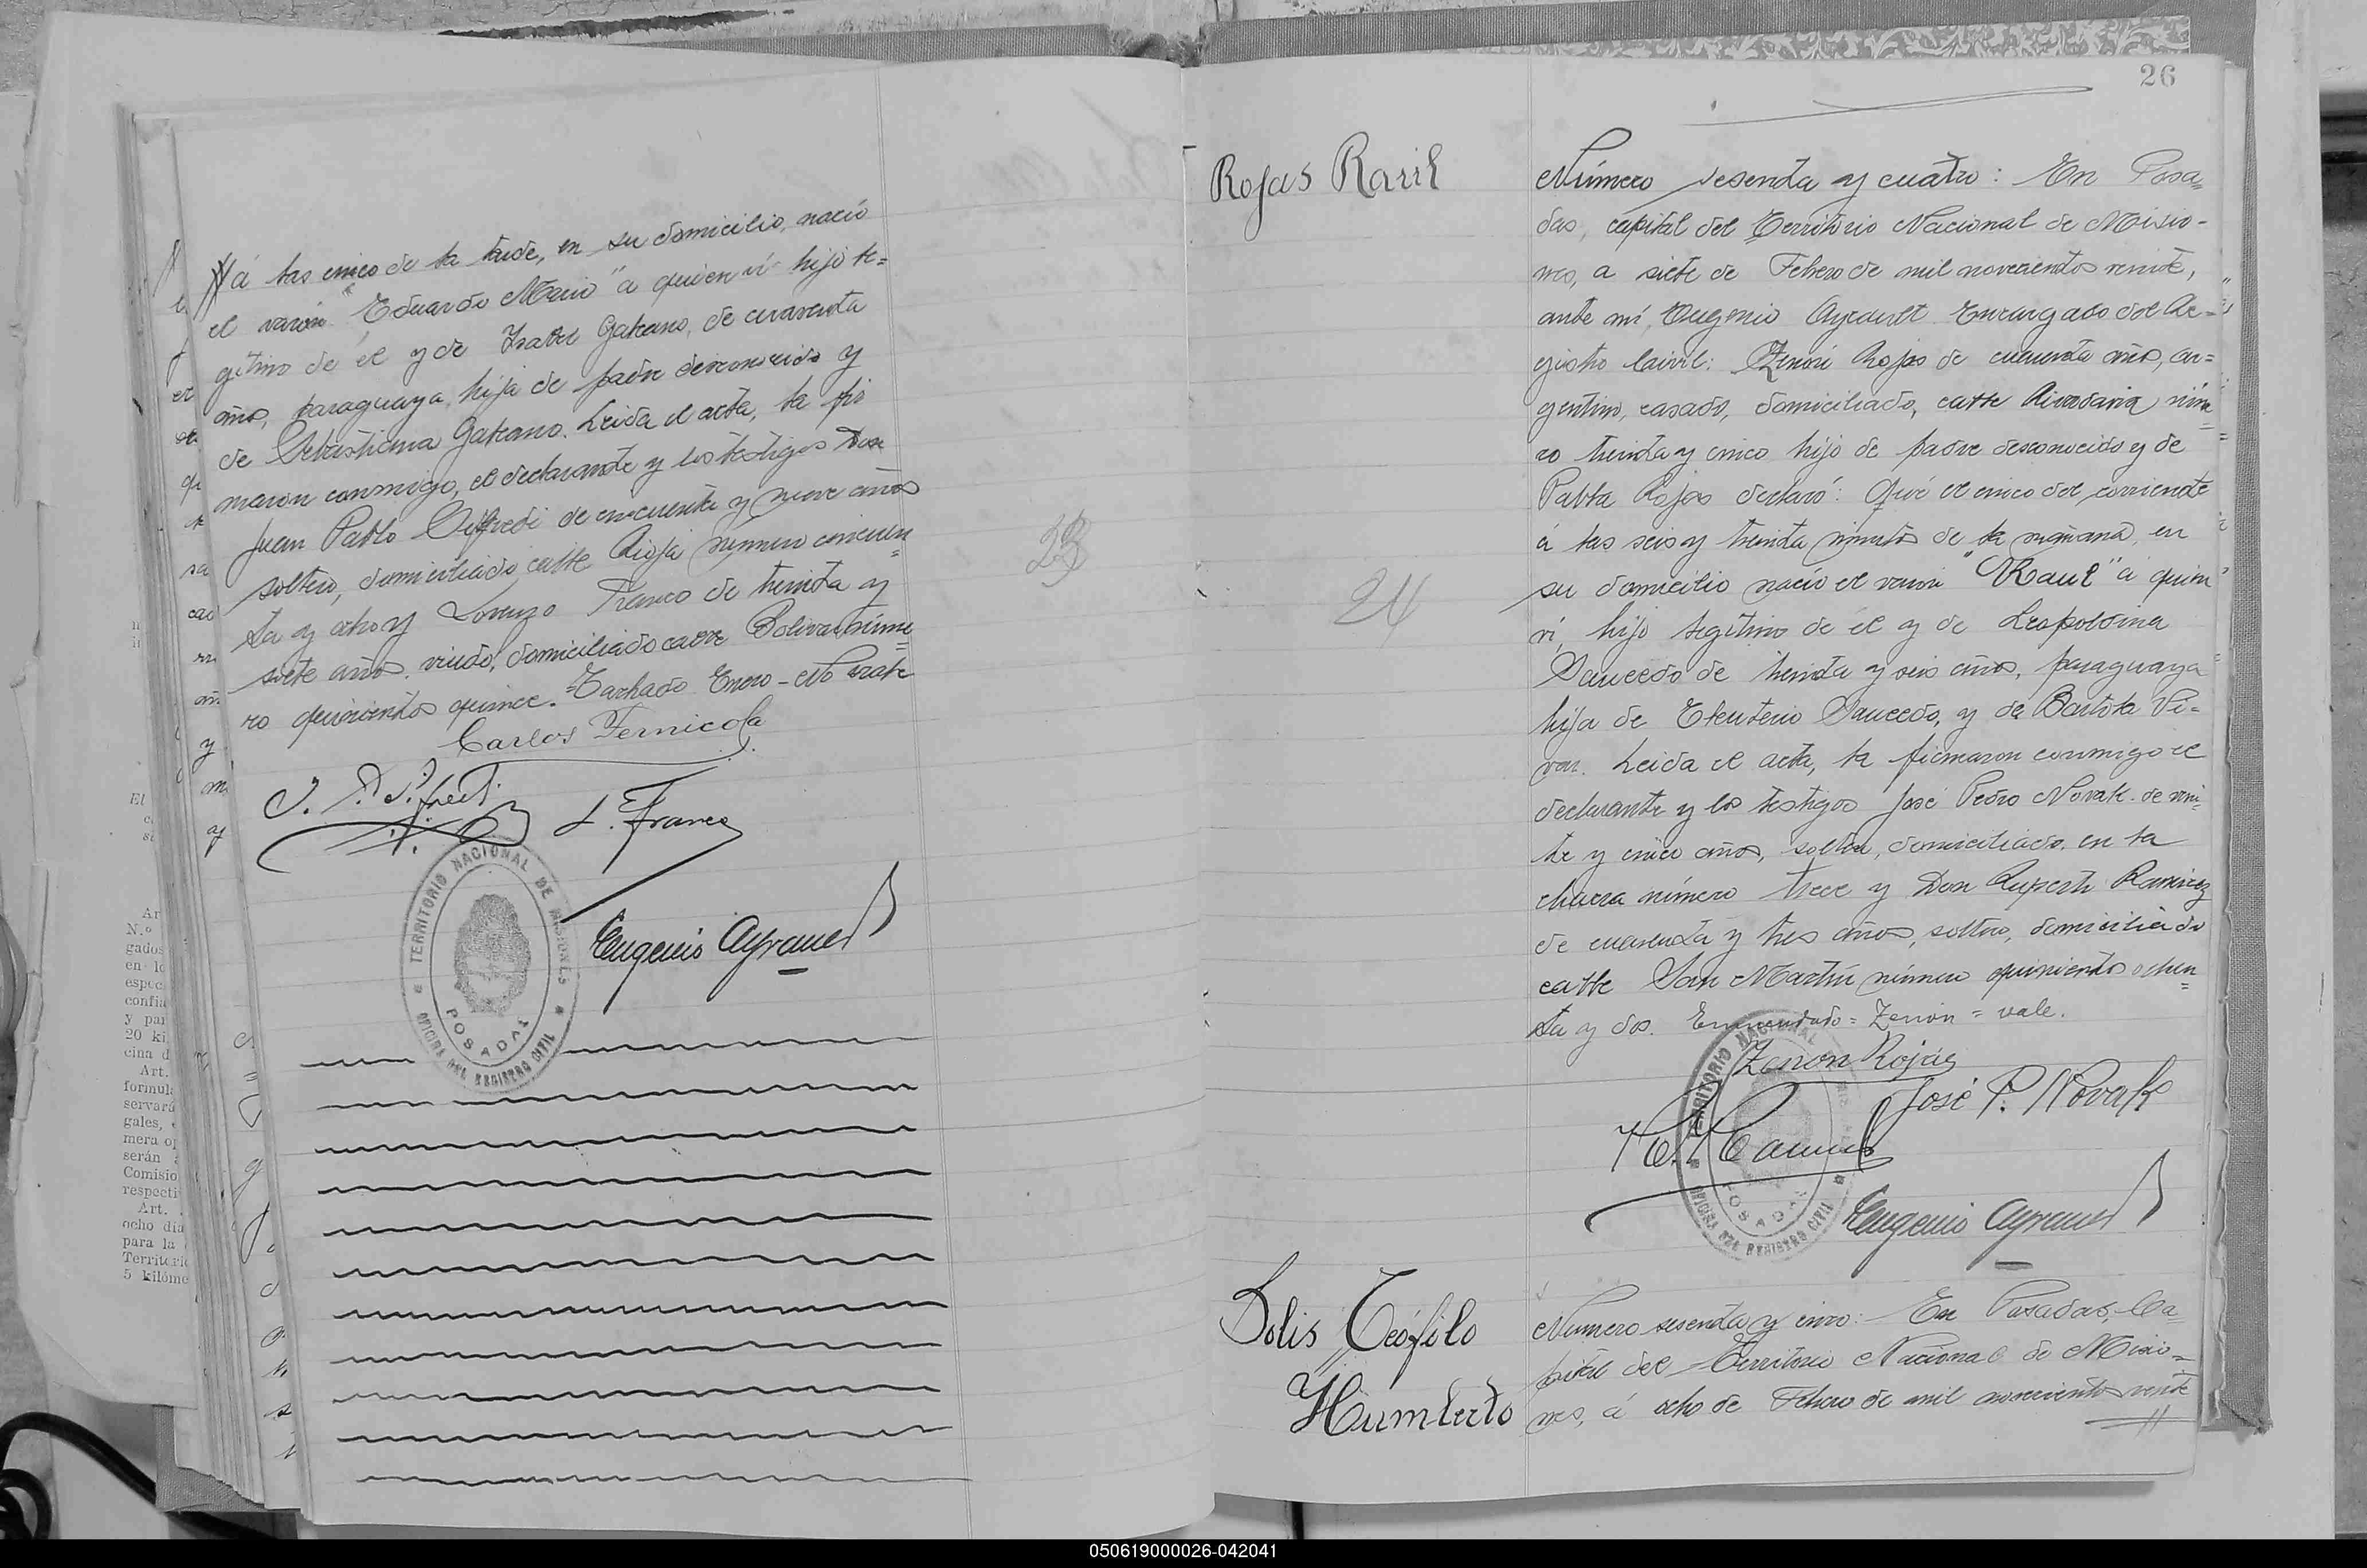 á las cinco de la tarde, en su domicilio, nació
el varón "Eduardo Mario" a quien ví hijo le=
gítimo de él y de Isabel Galeano, de cuarenta
años, paraguaya, hija de padre desconocido y
de Sebastiana Galeano. Leida el acta, la fir
maron conmigo, el declarante y los testigos Don
Juan Pablo de cincuenta y nueve años
soltero, domiciliado calle Rioja número cincuen=
ta y ocho y Lorenzo Franco de treinta y
siete años, viudo, domiciliado calle Bolívar núme=
ro quinientos quince. Tachado Enero - No vale
Carlos Fernicola
L. Franco
TERRITORIO NACIONAL DE MISIONES
POSADAS
OFICINA DEL REGISTRO CIVIL
Eugenio Ayrault
23
26
Rojas Raúl
Número sesenta y cuatro: En Posa=
das, capital del Territorio Nacional de Misio-
nes, a siete de Febrero de mil novecientos veinte,
ante mí, Eugenio Ayrault Encargado del Re=
gistro Civil: Zenón Rojas de cincuenta años, ar=
gentino, casado, domiciliado, calle Rivadavia núme=
ro treinta y cinco hijo de padre desconocido y de
Pabla Rojas declaró: Qué el cinco del corriente
á las seis y treinta minutos de la mañana, en
su domicilio nació el varón "Raul" a quien
ví, hijo legítimo de él y de Leopoldina
Saucedo de treinta y seis años, paraguaya
hija de Eleuterio Saucedo, y de Bartola Vi=
var. Leida el acta, la firmaron conmigo el
declarante y los testigos José Pedro Novak de vein-
te y cinco años, soltero, domiciliado en la
chacra número trece y Don Ruperto Ramirez
de cuarenta y tres años, soltero, domiciliado
calle San Martín número quinientos ochen=
ta y dos. Enmendado = Zenón = vale.
24
Zenon Rojas
José P. Novak
R. Ramirez
TERRITORIO NACIONAL
POSADAS
OFICINA DEL REGISTRO CIVIL
Eugenio Ayrault
Solis Teófilo
Humberto
Número sesenta y cinco: En Posadas, Ca=
pital del Territorio Nacional de Misio=
nes, á ocho de Febrero de mil novecientos veinte
Art.
formul
gales,
mera o
Comisio
respecti
Art.
ocho dia
para la
Territorio
5 kilóme
050619000026-042041